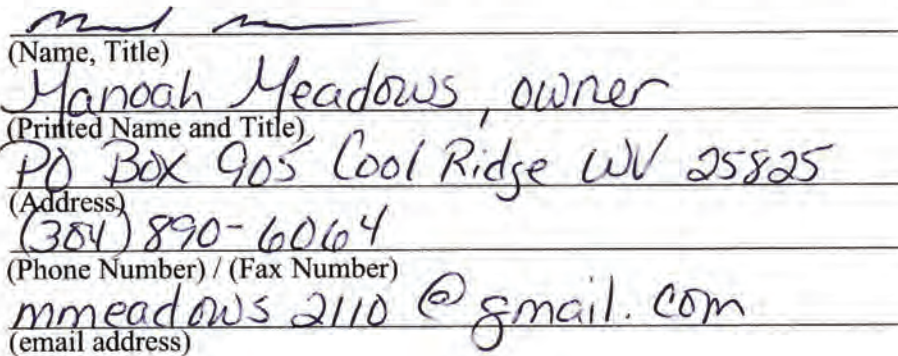 (Name, Title)
Manoah Meadows, owner
(Printed Name and Title)
PO Box 905 Cool Ridge WV 25825
(Address)
(304) 890-6064
(Phone Number) / (Fax Number)
mmeadows 2110 @ gmail. com
(email address)